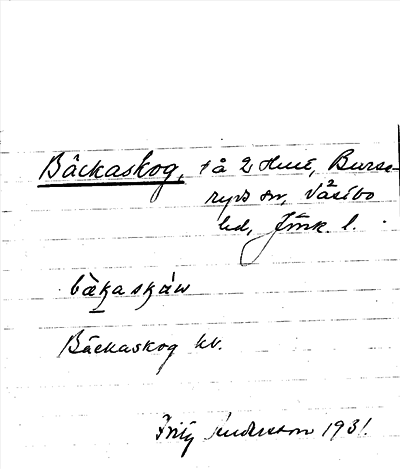 Bäckaskog, 1 å 2 Hult, Burse-
ryds sn, Västbo
hd, Jönk. l.
bäkaskáw
Bäckaskog kv.
Fritz Andersson 1931.